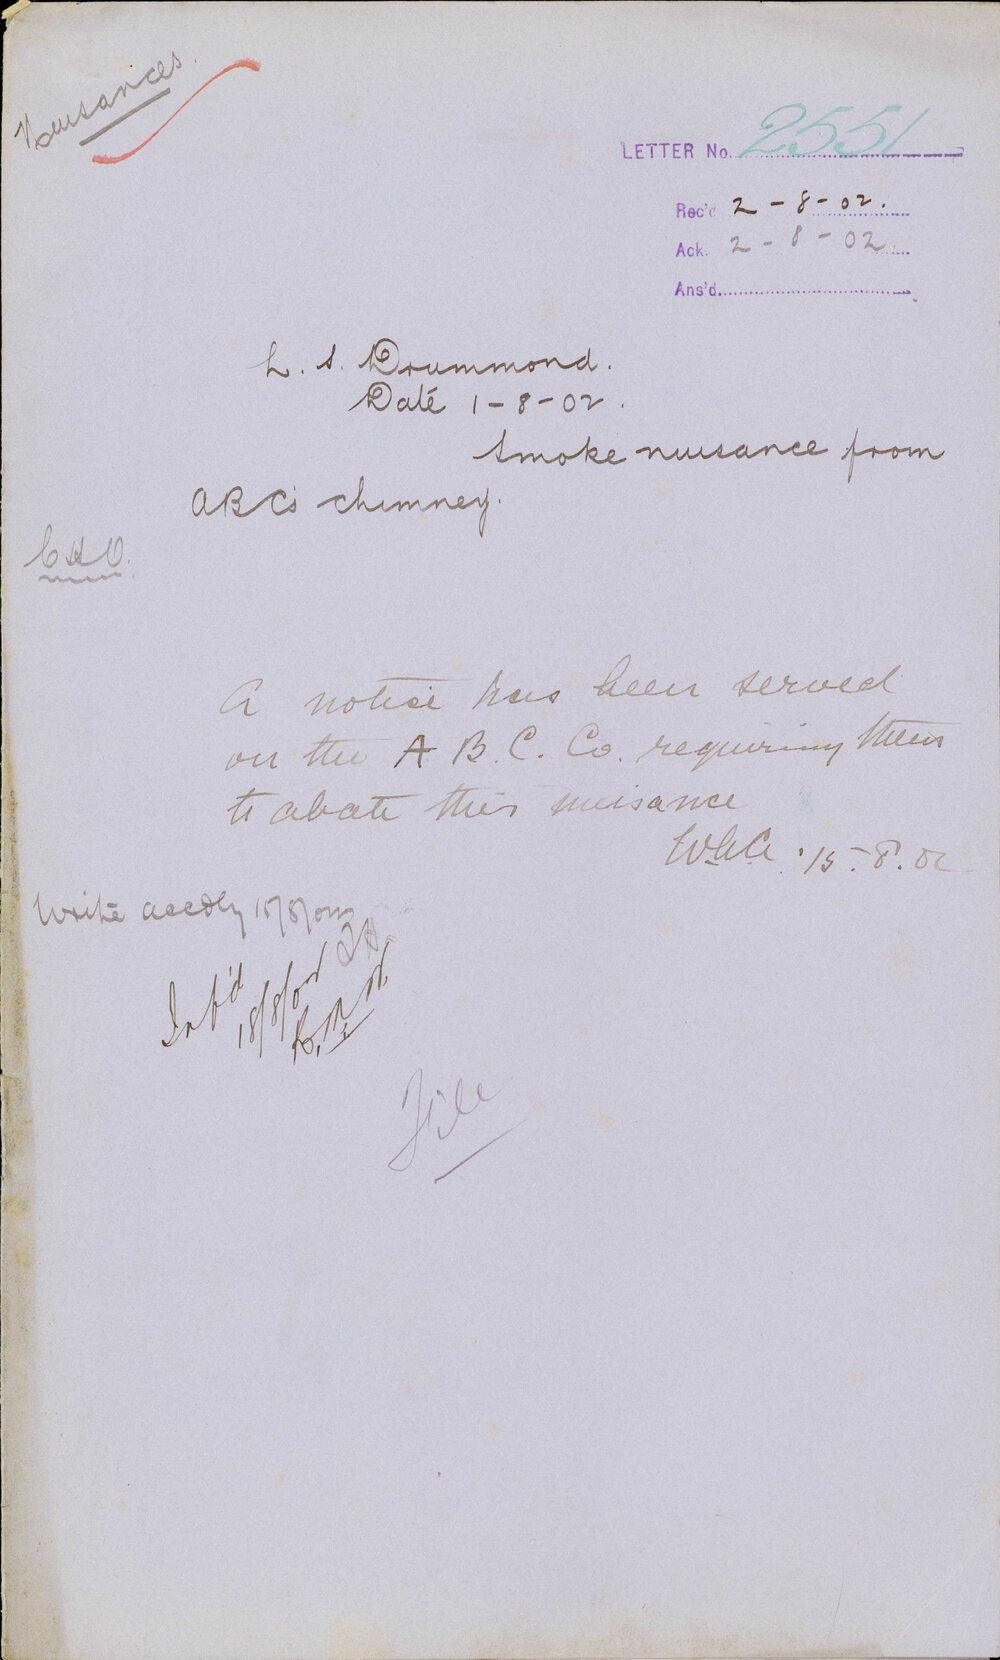 Nuisances.
LETTER No. 2551
Rec'd 2-8-02.
Ack. 2-8-02.
Ans'd.
L. S. Drummond.
Date 1-8-02.
Smoke nuisance from
ABC's chimney.
CHO.
A notice has been served
on the A B. C. Co. requiring them
to abate this nuisance
15.8.02
Write accdly
Inf'd
18/8/02
File